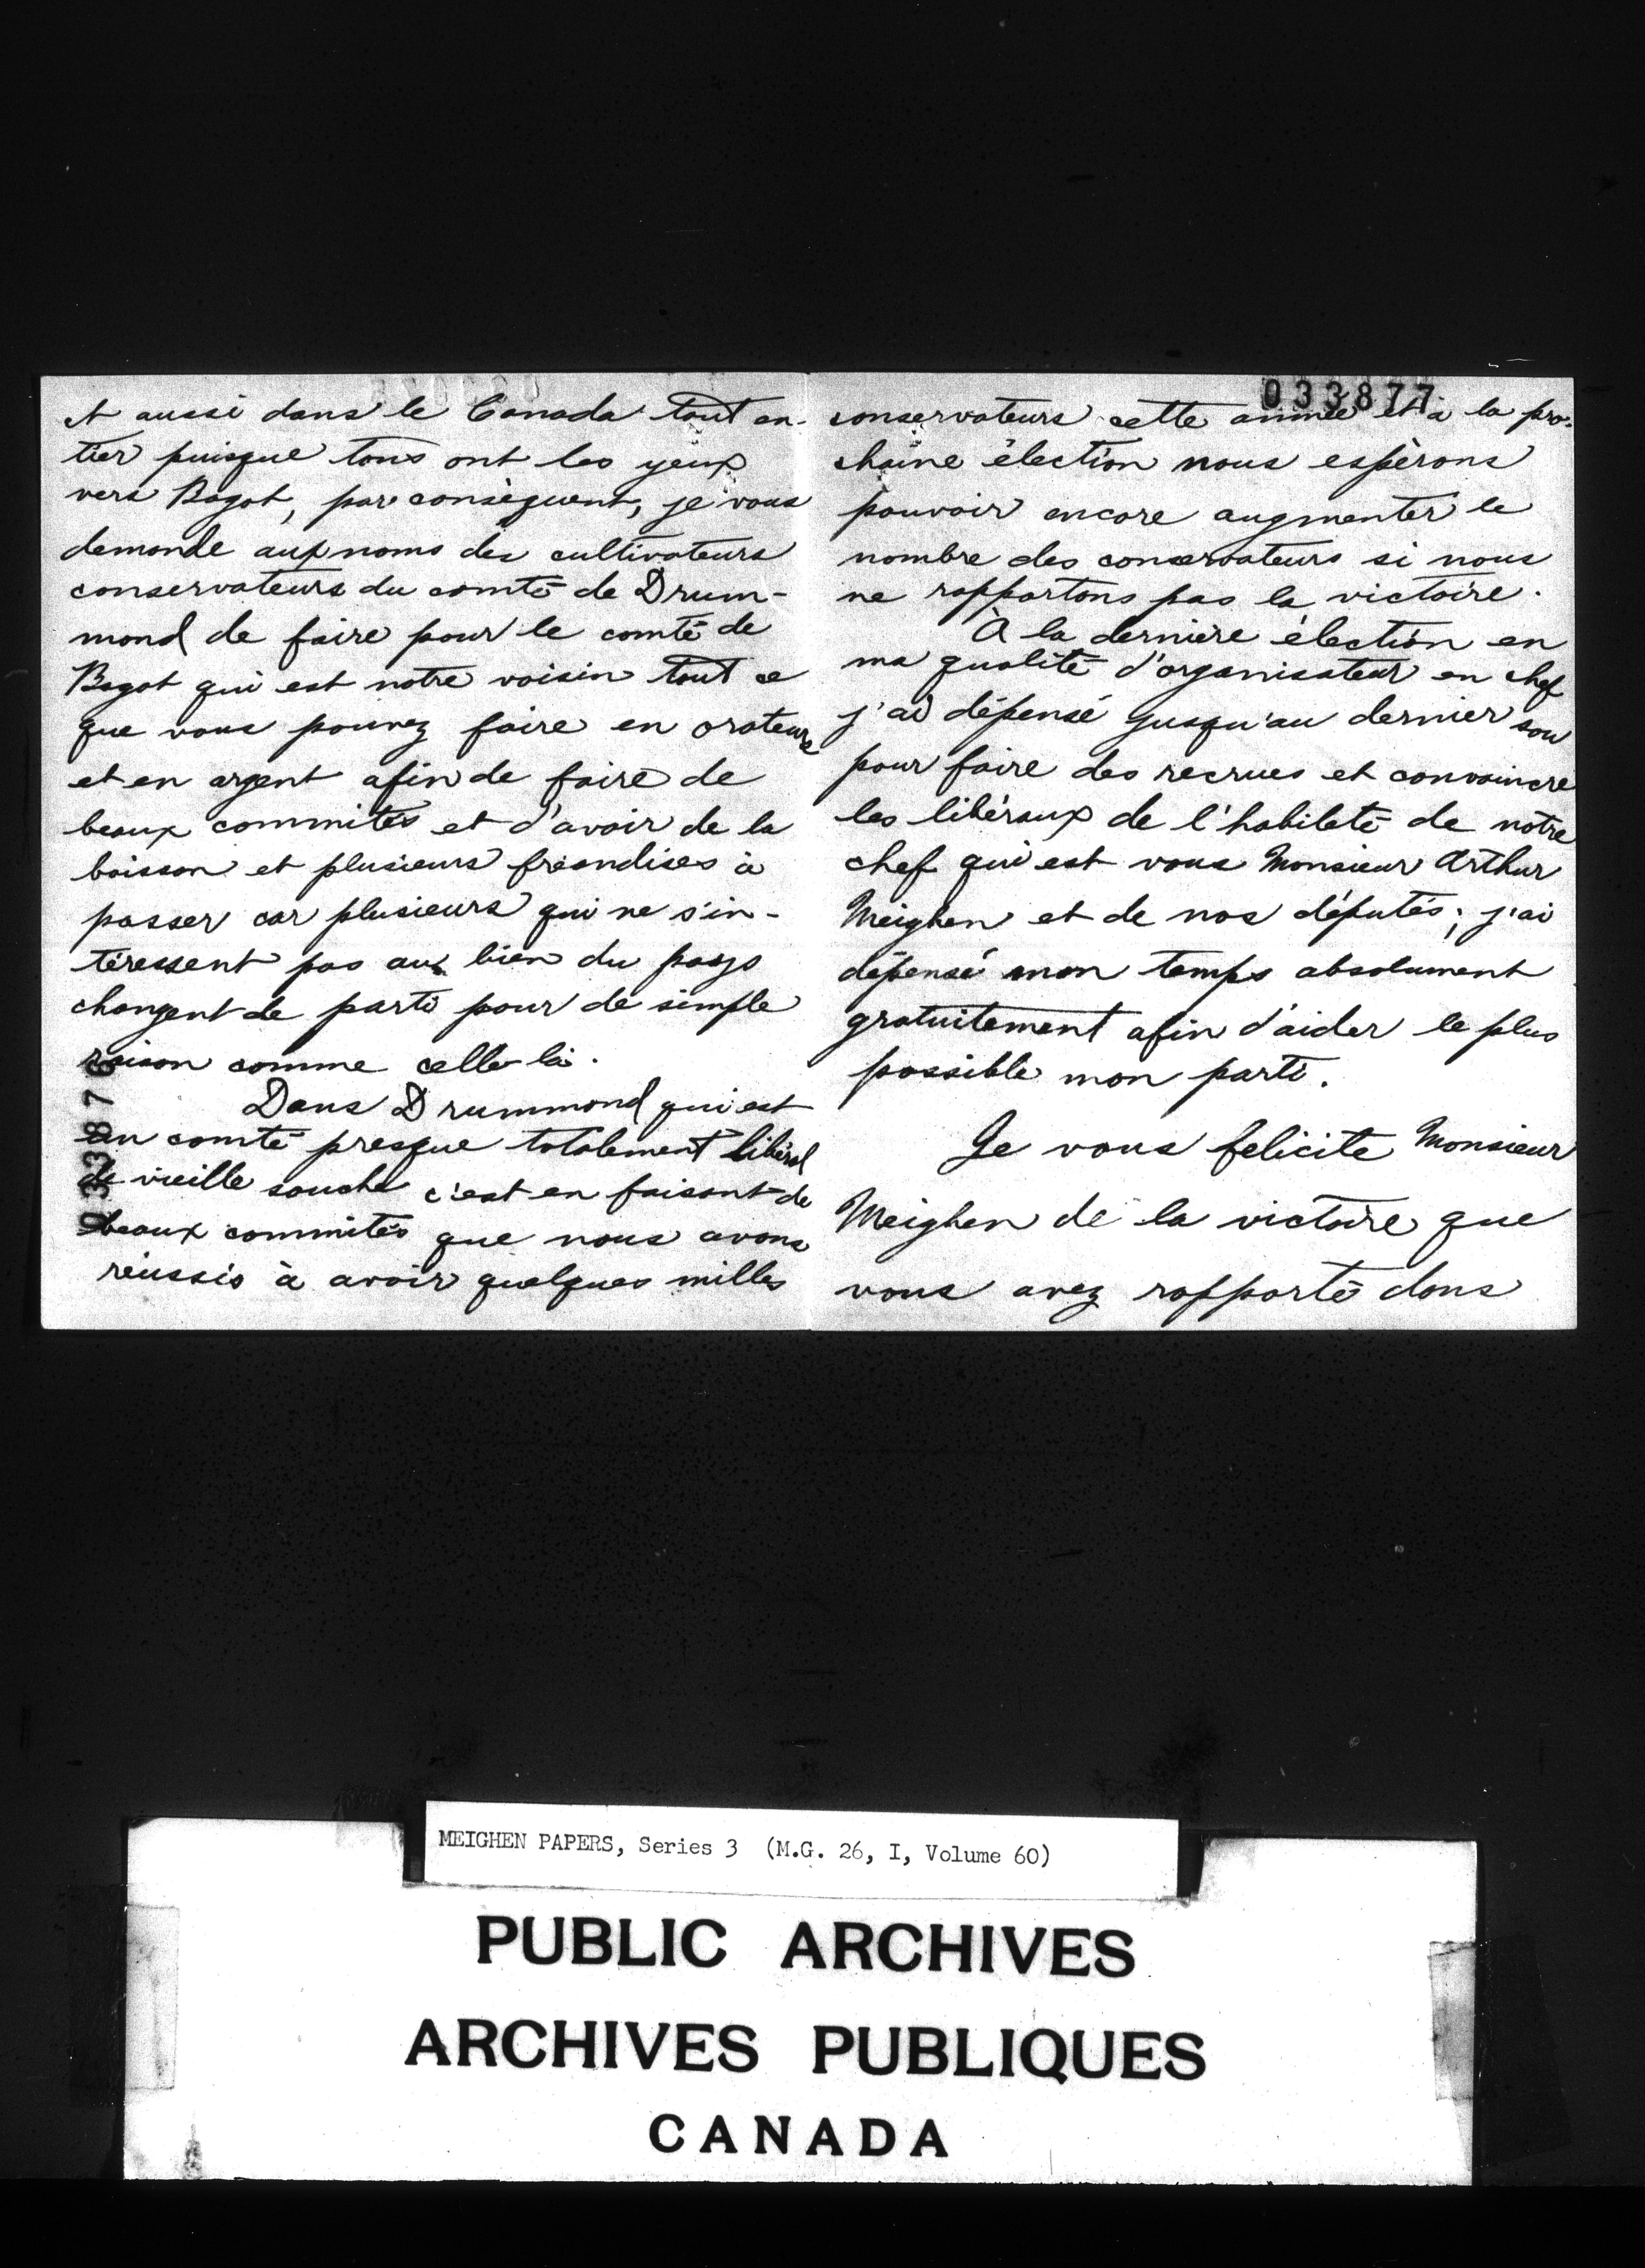 et aussi dans le Canada tout en-
tier puisque tous ont les yeux
vers Bagot, par conséquent, je vous
demande aux noms des cultivateurs
conservateurs du comté de Drum-
mond de faire pour le comté de
Bagot qui est notre voisin tout ce
que vous pouvez faire en orateurs
et en argent afin de faire de
beaux commités et d'avoir de la
boisson et plusieurs friandises à
passer car plusieurs qui ne s'in-
téressent pas aux bien du pays
changent de parti pour de simple
raison comme celle-là.
Dans Drummond qui est
un comté presque totalement libéral
de vieille souche c'est en faisant de
beaux commités que nous avons
réussis à avoir quelques milles
033876
033877
conservateurs cette année et à la pro-
chaine élection nous espèrons
pouvoir encore augmenter le
nombre des conservateurs si nous
ne rapportons pas la victoire.
À la dernière élection en
ma qualité d'organisateur en chef
j'ai dépensé jusqu'au dernier sou
pour faire des recrues et convaincre
les libéraux de l'habileté de notre
chef qui est vous Monsieur Arthur
Meighen et de nos députés; j'ai
dépensé mon temps absolument
gratuitement afin d'aider le plus
possible mon parti.
Je vous felicite Monsieur
Meighen de la victoire que
vous avez rapporté dans
MEIGHEN PAPERS, Series 3 (M.G. 26, I, Volume 60)
PUBLIC ARCHIVES
ARCHIVES PUBLIQUES
CANADA